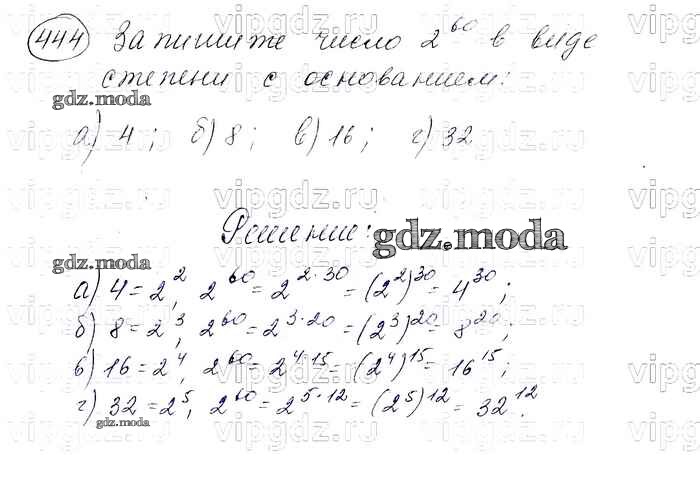 444 Запишите число 2^60 в виде
степени с основанием:
gdz.moda
а) 4; б) 8; в) 16; г) 32
Решение:
gdz.moda
gdz.moda
а) 4 = 2^2, 2^60 = 2^2·30 = (2^2)^30 = 4^30;
б) 8 = 2^3, 2^60 = 2^3·20 = (2^3)^20 = 8^20;
в) 16 = 2^4, 2^60 = 2^4·15 = (2^4)^15 = 16^15;
г) 32 = 2^5, 2^60 = 2^5·12 = (2^5)^12 = 32^12.
gdz.moda
vipgdz.ru